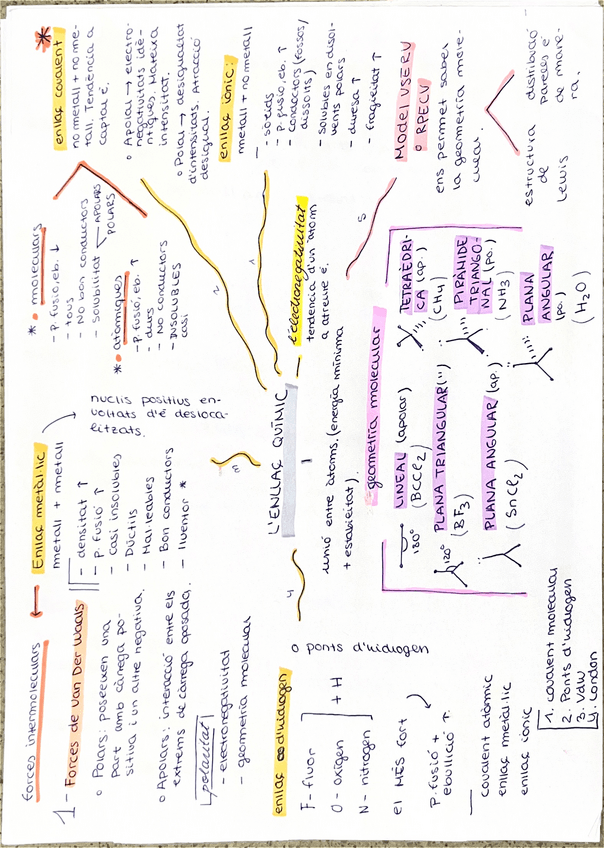 L'ENLLAÇ QUÍMIC
1
unió entre àtoms, (energia mínima
+ estabilitat).
l'electronegativitat
tendència d'un àtom
a atreure é.
*
enllaç covalent
no metall + no me-
tall. Tendència a
captar é.
o Apolar → electro-
negativitats idè-
ntiques Mateixa
intensitat.
o Polar → desigualtat
d'intensitats. Atracció
desigual.
* • moleculars
- P. fusió, eb. ↓
- tous
- No bon conductors
- solubilitat
APOLARS
POLARS
* • atòmiques
- P. fusió, eb. ↑
- durs
- No conductors
- INSOLUBLES
casi
2
1
enllaç iònic:
metall + no metall
- sòlids
- P. fusió, eb. ↑
- conductors (fossos/
dissolts)
- solubles en disol-
vents polars
- duresa ↑
- fragilitat ↑
5
Model VSERV
o RPECV
ens permet saber
la geometria mole-
cular.
estructura
de
Lewis
distribució
parelles é
de mane-
ra.
geometria molecular
LINEAL (apolar)
(BCCl2)
180°
PLANA TRIANGULAR(")
(BF3)
120°
PLANA ANGULAR (ap.)
(SnCl2)
TETRAÈDRI-
CA (ap.)
(CH4)
PIRÀMIDE
TRIANGO-
NAL (po.)
(NH3)
PLANA
ANGULAR
(po.)
(H2O)
3
Enllaç metàl·lic
metall + metall
nuclis positius en-
voltats d'é desloca-
litzats.
- densitat ↑
- P. Fusió ↑
- casi insolubles
- Dúctils
- Mal·leables
- Bon conductors
- lluentor *
4
forces intermoleculars
1- Forces de Van Der Waals
o Polars: poseeixen una
part amb càrrega po-
sitiva i un altre negativa.
o Apolars: interacció entre els
extrems de càrrega oposada.
polaritat
- electronegativitat
- geometria molecular
enllaç d'hidrogen
o ponts d'hidrogen
F- fluor
O- oxígen
N- nitrogen
+ H
el MÉS fort
P. fusió +
ebullició ↑.
covalent atòmic
enllaç metàl·lic
enllaç iònic
1. covalent molecular
2. Ponts d'hidrogen
3. VdW
4. London